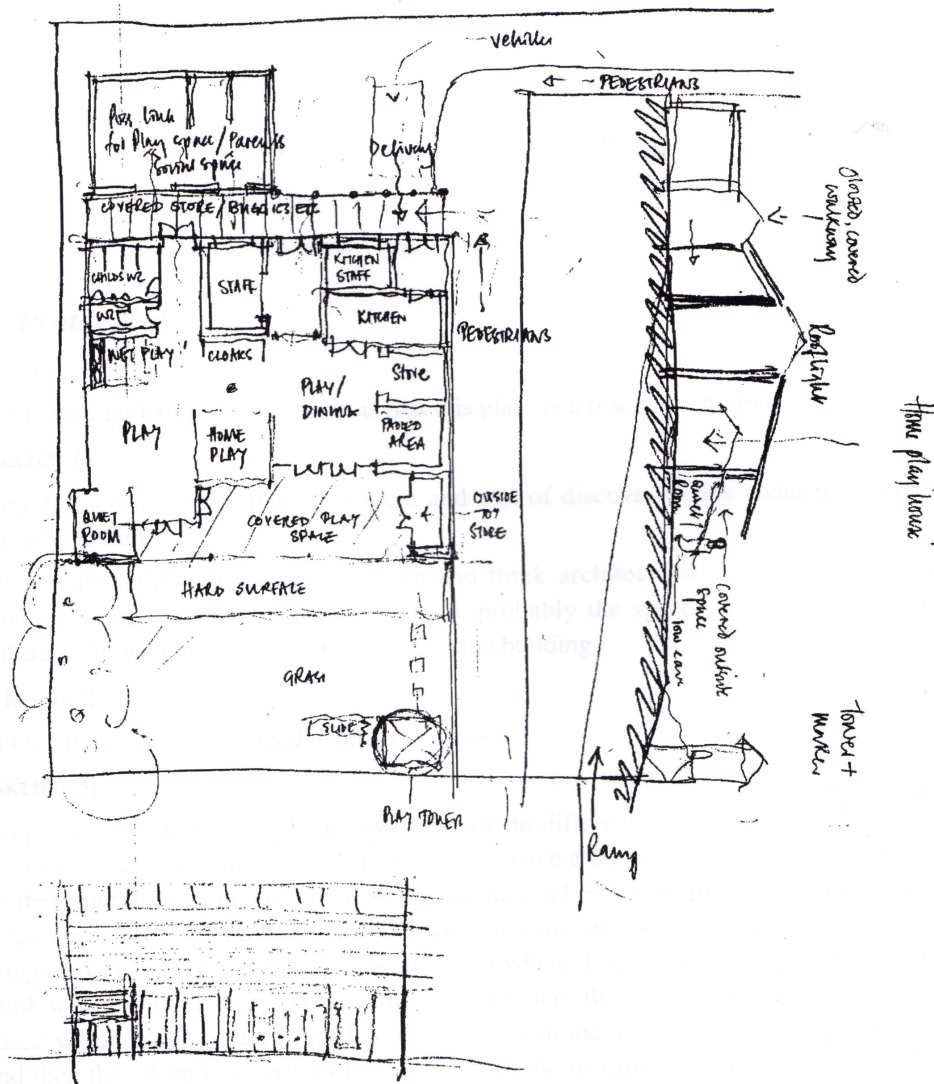 vehicles
← PEDESTRIANS
Poss link
for Play space / Parents
social space
Delivery
COVERED STORE / BUGGIES ETC
CHILDS WC
WC
STAFF
KITCHEN
STAFF
KITCHEN
PEDESTRIANS
WET PLAY
CLOAKS
Store
PLAY
HOME
PLAY
PLAY/
DINING
PADDED
AREA
QUIET
ROOM
COVERED PLAY
SPACE
OUTSIDE
TOY
STORE
HARD SURFACE
GRASS
SLIDE
PLAY TOWER
Ramp
glazed, covered
walkway
Rooflight
Home play house
Quiet
room
Covered outside
space
low eave
Tower +
Marker